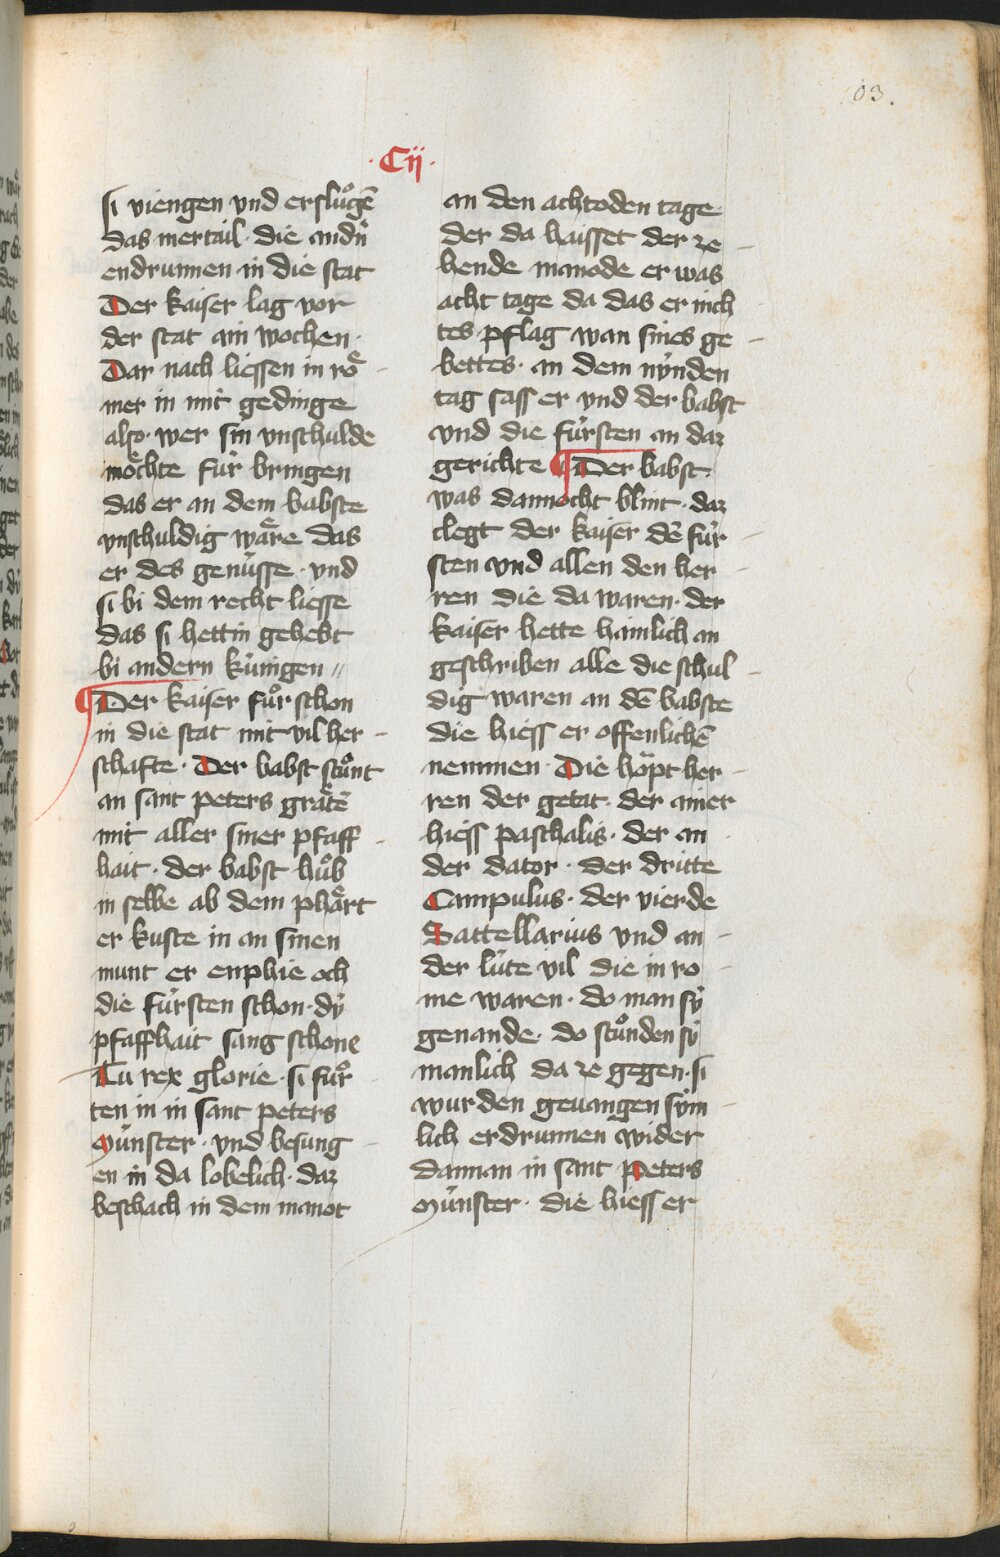 103.
·Cij·
si viengen vnd erslůgē
das mertail · die andn̄
endrunnen in die stat
Der kaiser lag vor
der stat ain wochen ·
Dar nach liessen in rȯͤ
mer in mit gedinge
also · wer sin vnschulde
mo᷑chte fúr bringen
das er an dem babste
vnschuldig wa᷑re das
er des genússe · vnd
si bi dem recht liesse
das si hettin gehebt
bi andern kúnigen //
¶ Der kaiser fůr schon
in die stat mit vil her -
schafte · Der babst stůnt
an sant peters gra᷑tē
mit aller siner pfaff -
hait · der babst hůb
in selbe ab dem pha᷑rt
er kuste in an sinen
munt er enphie och
die fúrsten schon · dÿ
pfaffhait sang schone
Tu rex glorie · si fůr
ten in in sant peters
Múnster · vnd besung -
en in da lobelich · daz
beschach in dem manot
an den achtoden tage
der da haisset der ze -
hende manode er was
acht tage da das er nich
tes pflag wan sines ge -
bettes · an dem nýnden
tag sass er vnd der babst
vnd die fúrsten an daz
gerichte ¶ Der babst ·
was dannocht blint · daz
clegt der kaiser dē fúr -
sten vnd allen den her -
ren die da waren · der
kaiser hette hainlich an
geschriben alle die schul -
dig waren an dē babste
die hiess er offenlichē
nemmen · Die hȯpt her -
ren der getat · der ainer
hiess paschalis · der an -
der dator · der dritte
Campulus · der vierde
Sattellarius vnd an -
der lúte vil die in ro -
me waren · do man sÿ
genande · do stůnden sÿ
manlich da ze gegen · si
wurden geuangen sým -
lich erdrunnen wider
dannan in sant peters
Múnster · die hiess er